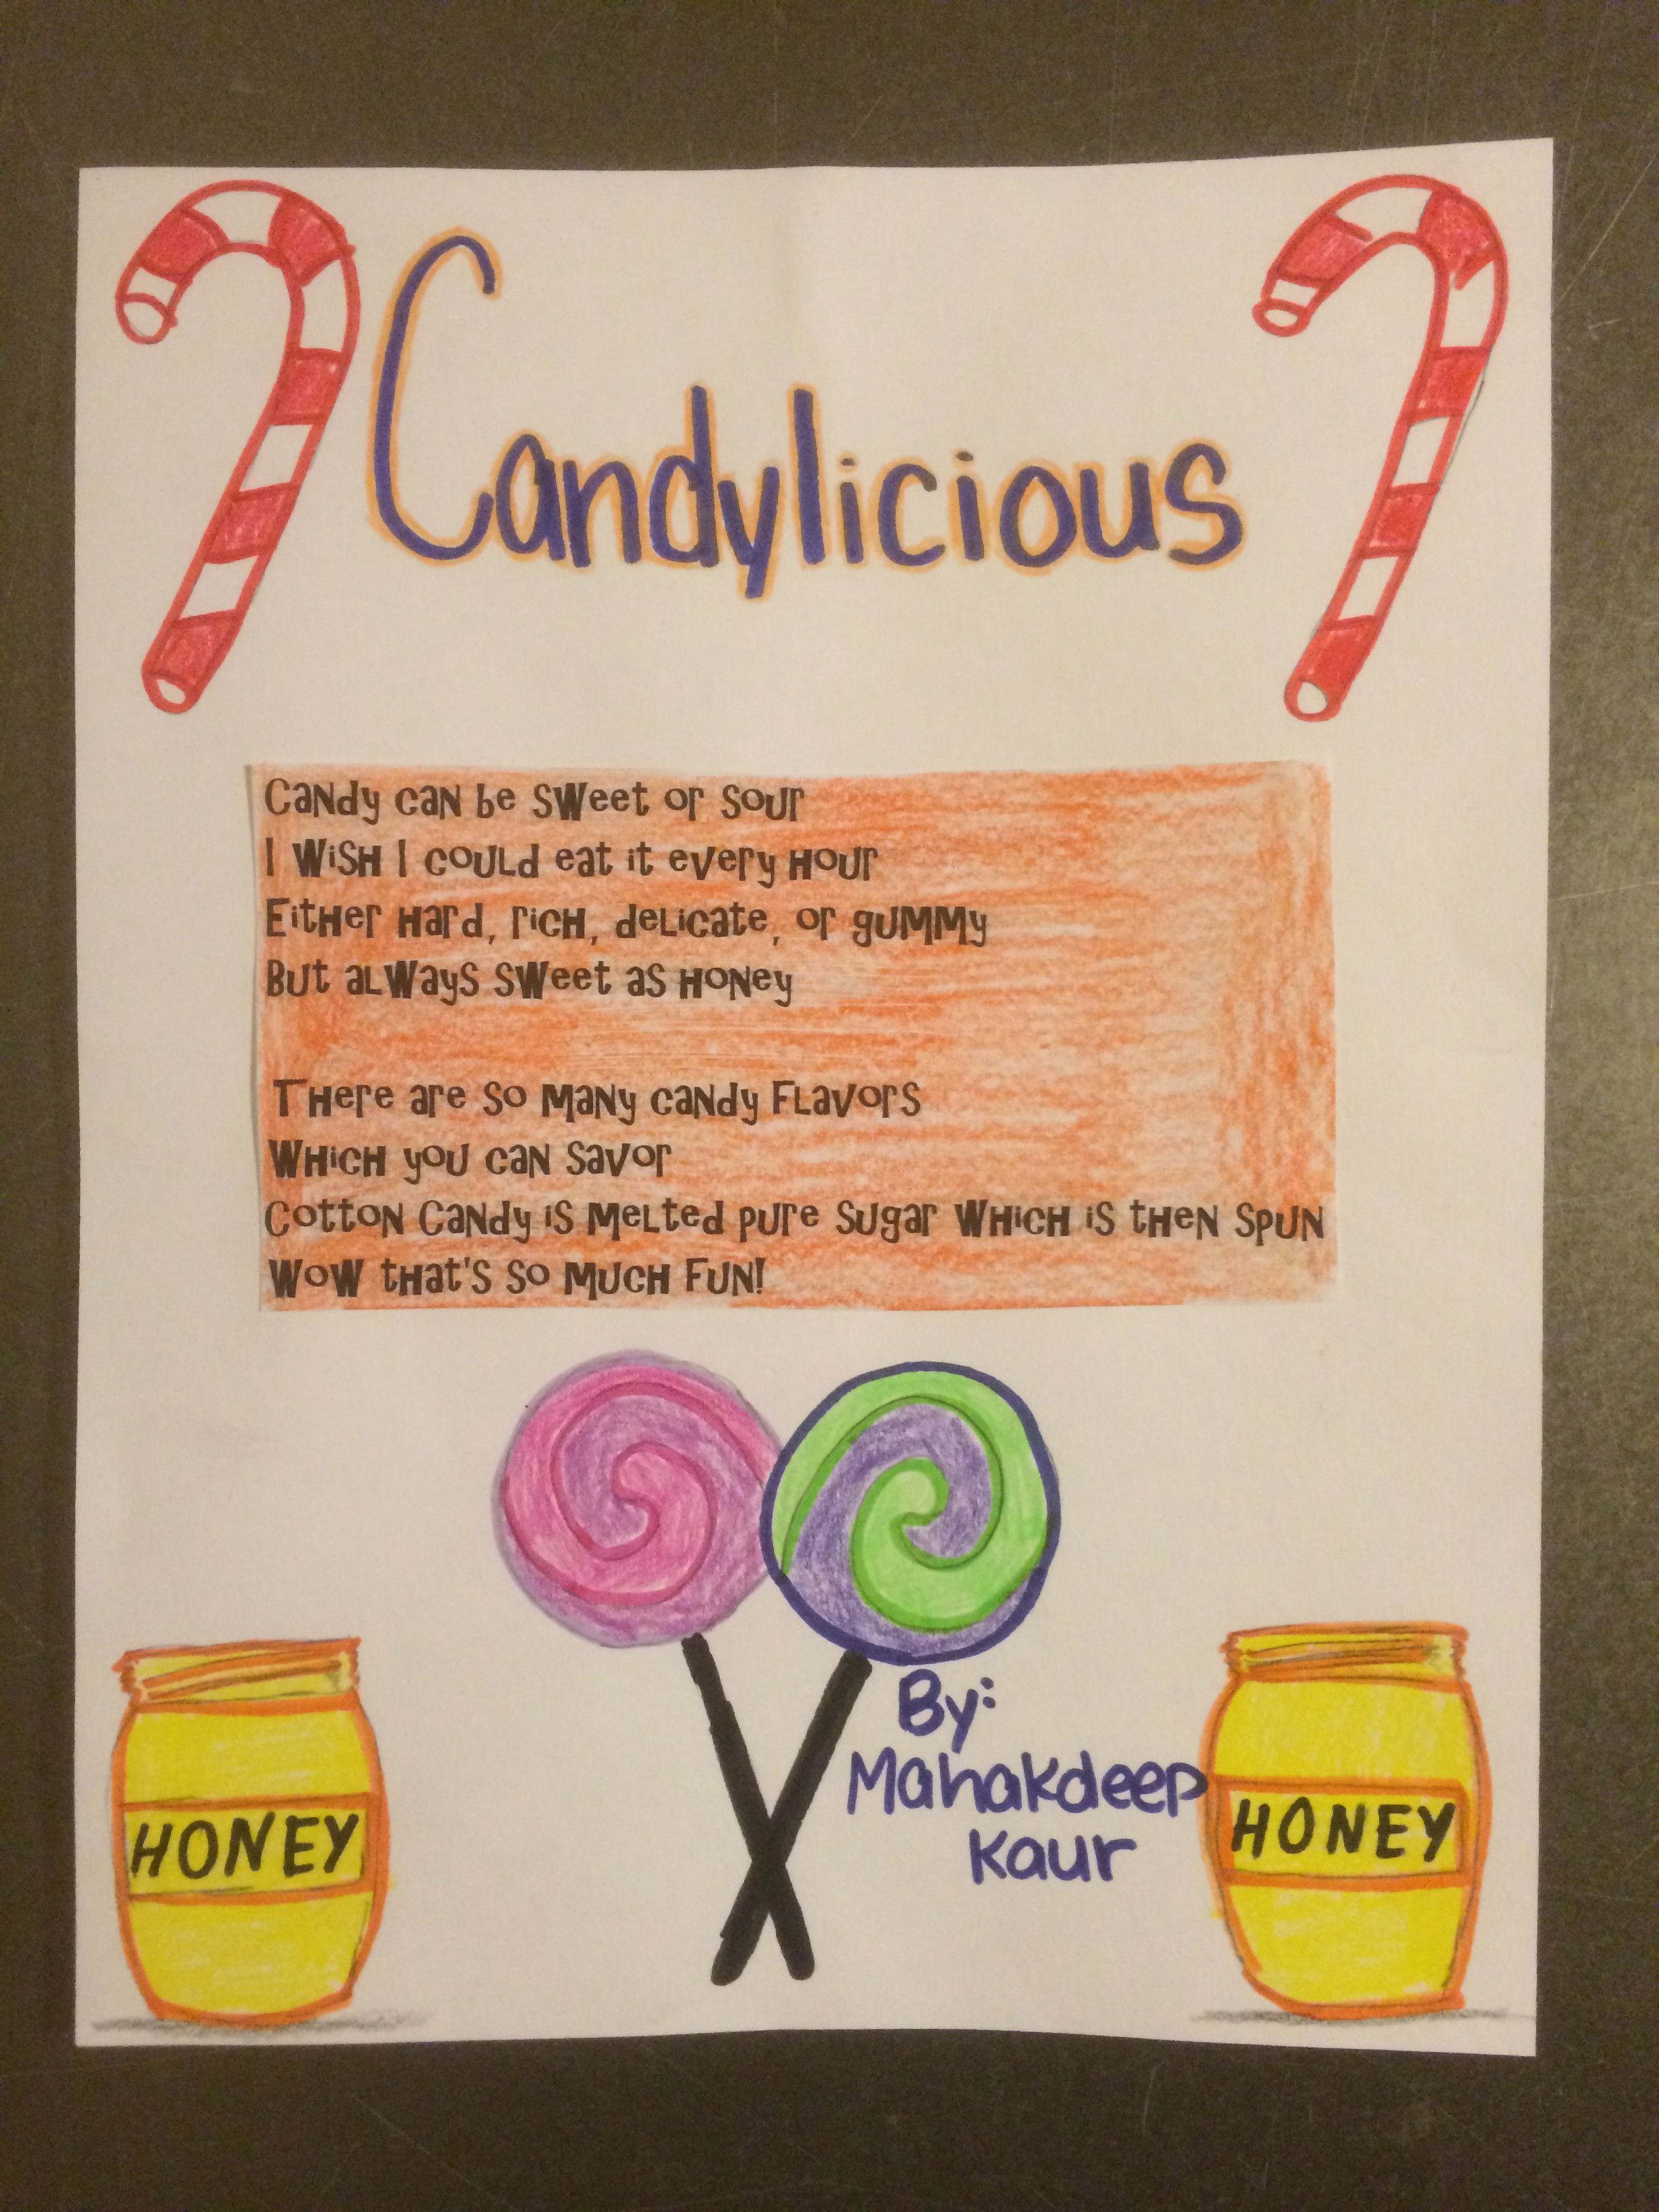 Candylicious
Candy can be sweet or sour
I wish I could eat it every hour
Either hard, rich, delicate, or gummy
But always sweet as honey
There are so many candy flavors
Which you can savor
Cotton Candy is melted pure sugar which is then spun
Wow that's so much fun!
By:
Mahakdeep
Kaur
HONEY
HONEY